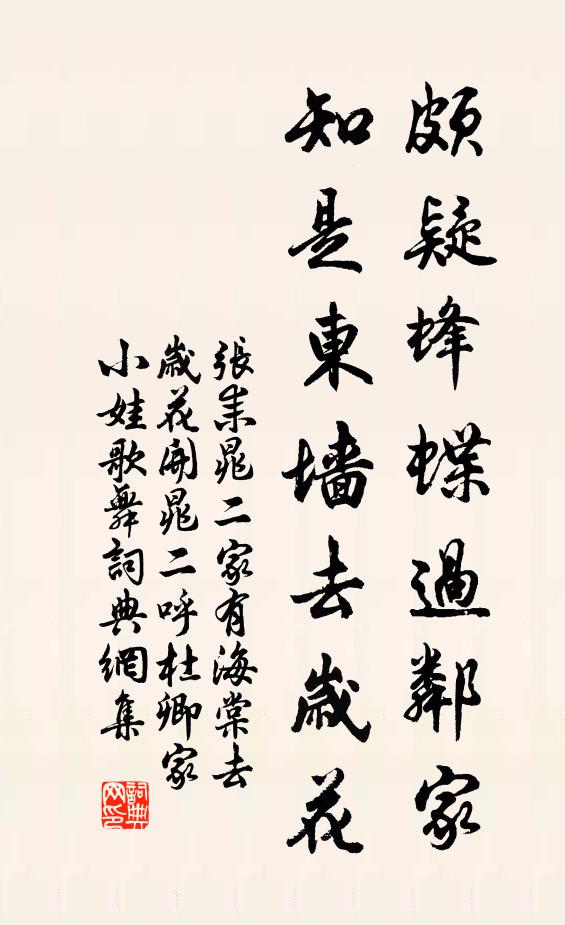 頗疑蜂蝶過鄰家
知是東墻去歲花
張耒晁二家有海棠去
歲花開晁二呼杜卿家
小娃歌舞詞典網集
詞典网印